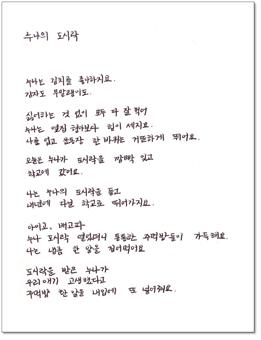 누나의 도시락
누나는 김치를 좋아하지요.
감자도 부침개도.
싫어하는 것 없이 모두 다 잘 먹어
누나는 옆집 형아보다 힘이 세지요.
나를 업고 운동장 한 바퀴는 거뜬하게 뛰어요.
오늘은 누나가 도시락을 깜빡 잊고
학교에 갔어요.
나는 누나의 도시락을 들고
내년에 다닐 학교로 뛰어가지요.
아이고, 배고파
누나 도시락 열었더니 동동한 주먹밥들이 가득해요.
나는 냉큼 한 알을 집어먹어요
도시락을 받은 누나가
우리 애기 고생했다고
주먹밥 한 알을 내 입에 또 넣어줘요.